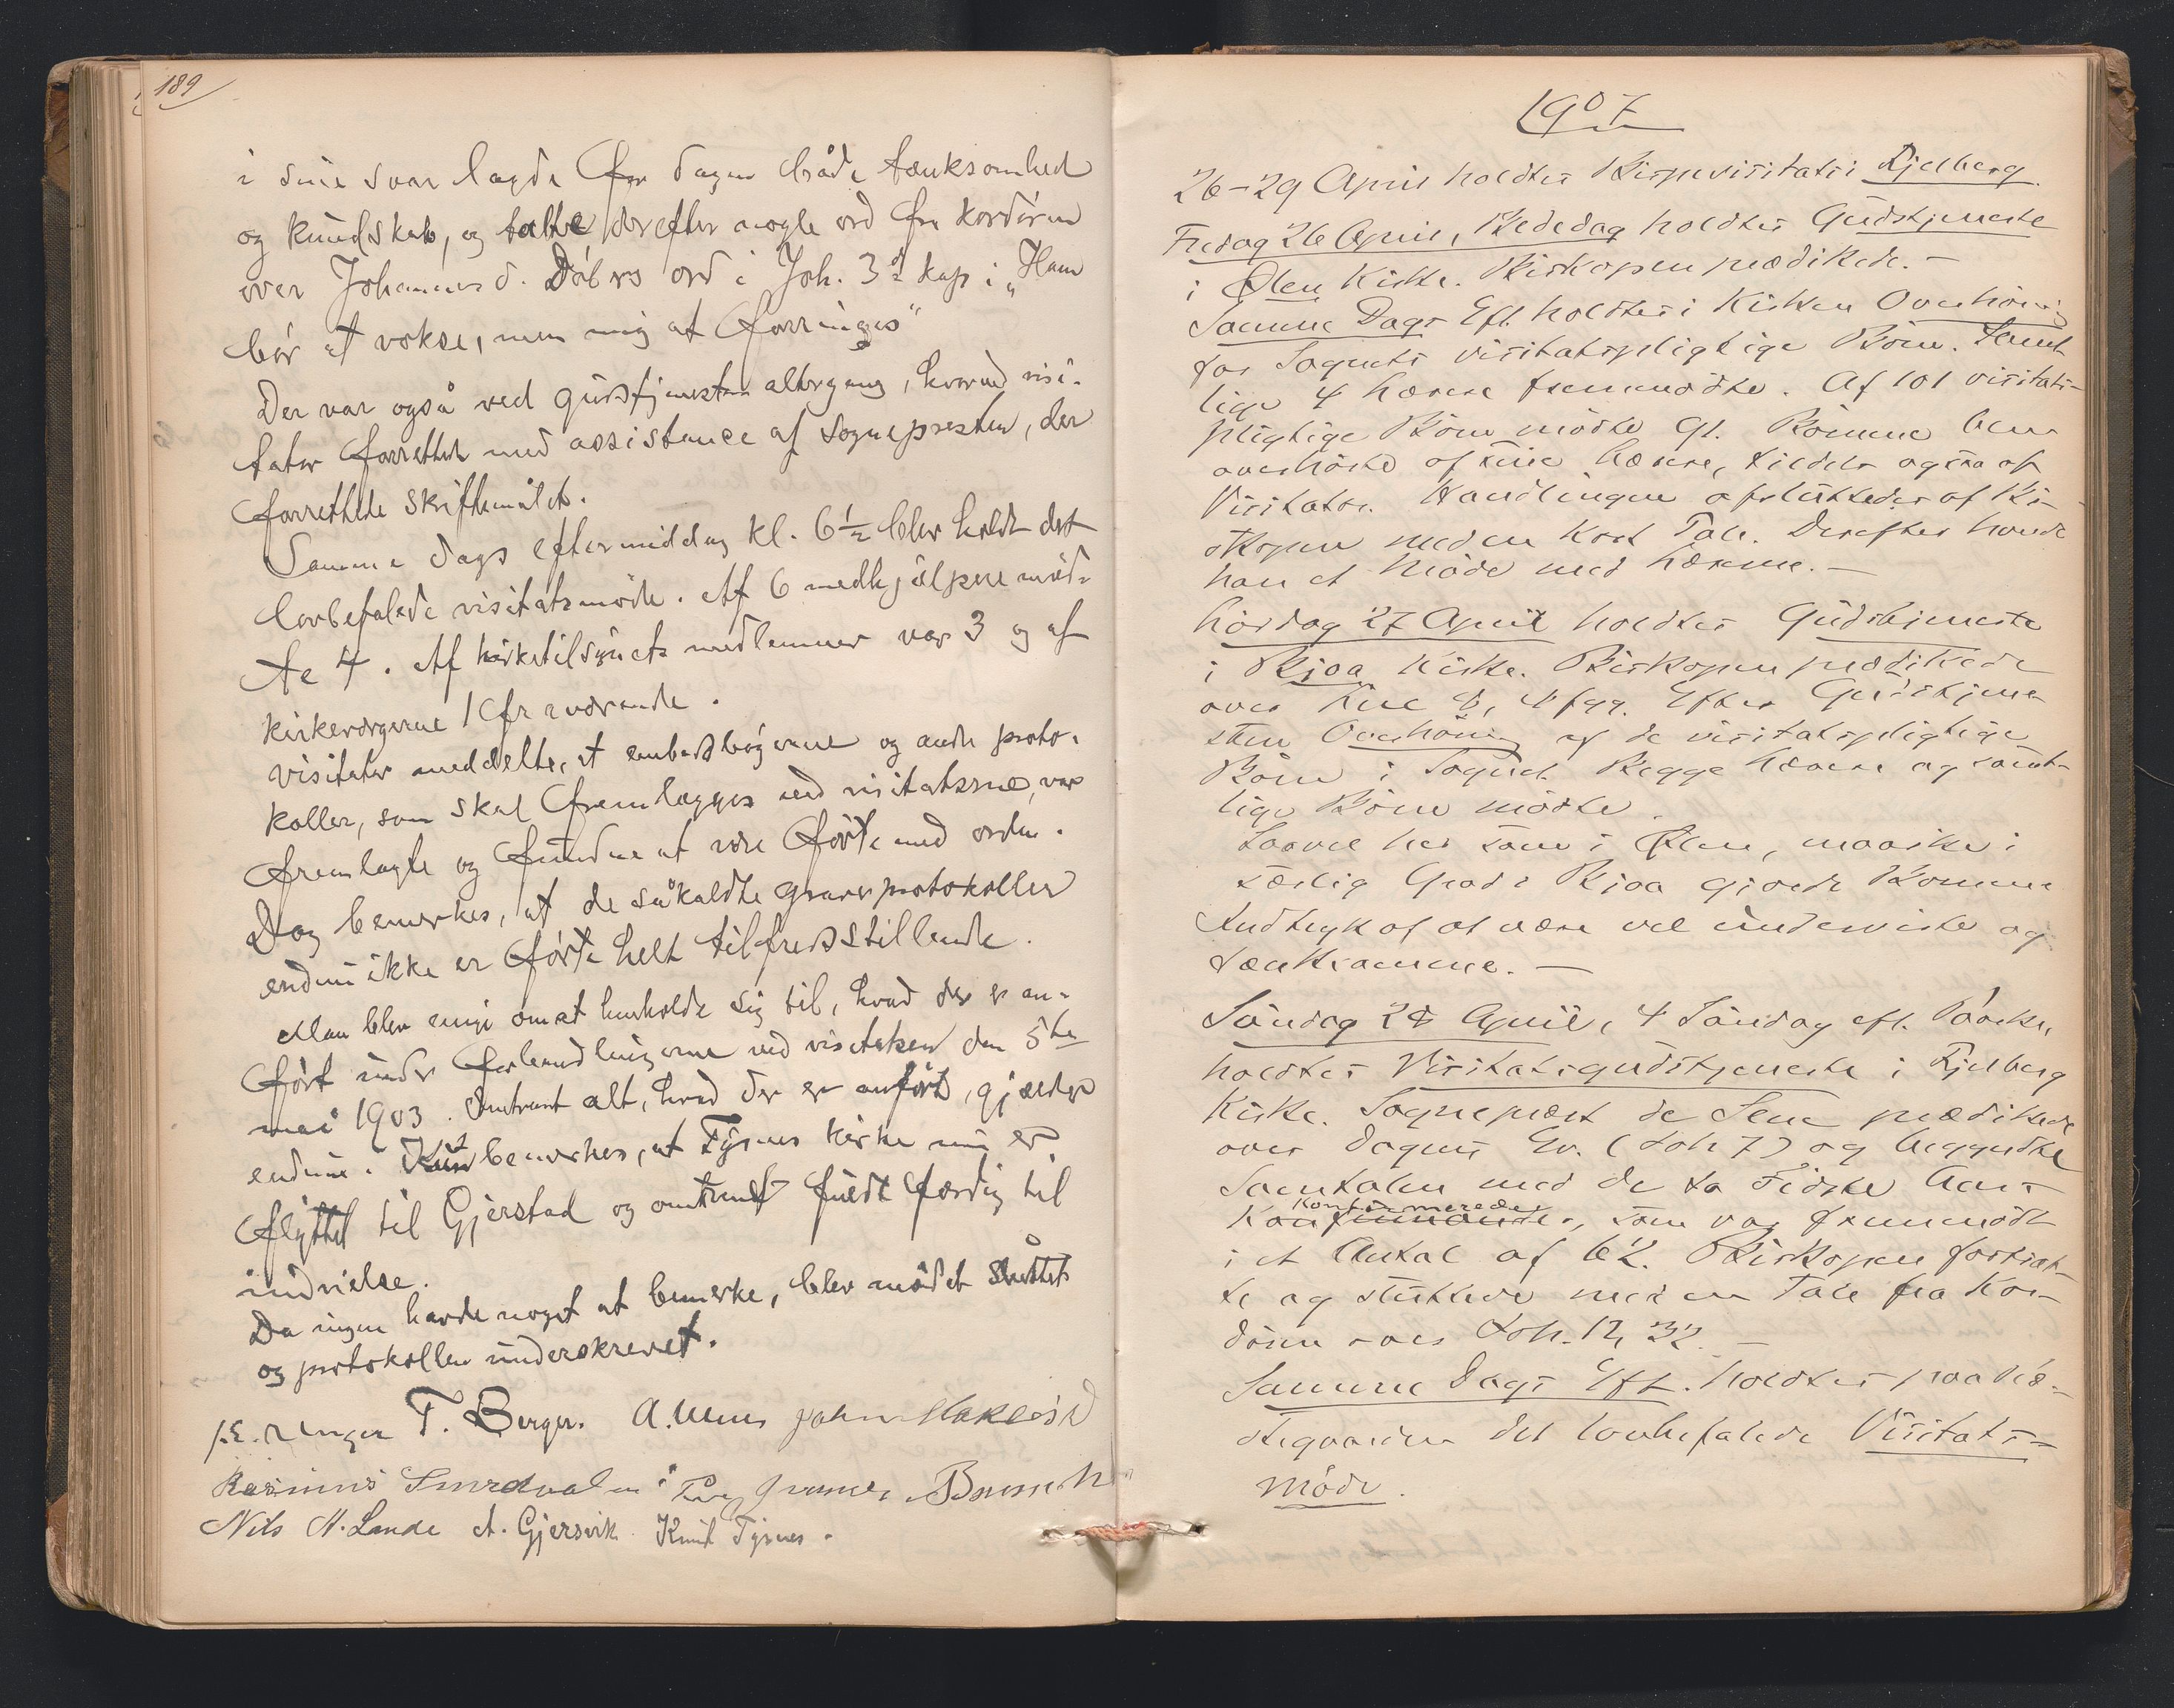 189
i sine svar lagde for dagen både tænksomhed
og kundskab, og talte derefter nogle ord fra kordøren
over Johannes d. Døbers ord i Joh. 3d kap: „Ham
bør at vokse, men mig at forringes“
Der var også ved gudstjenesten altergang, hvorved visi-
tator forrettede med assistance af sognepresten, der
forrettede skriftemålet.
Samme dags eftermiddag kl. 6½ blev holdt det
lovbefalede visitatsmøde. Af 6 medhjælpere mød-
te 4. Af kirketilsynets medlemmer var 3 og af
kirkeværgerne 1 fraværende.
Visitator meddelte, at embedsbøgerne og andre proto-
koller, som skal fremlægges ved visitatserne, var
fremlagte og fundne at være førte med orden.
Dog bemerkes, at de såkaldte graverprotokoller
endnu ikke er førte helt tilfredsstillende.
Man blev enige om at henholde sig til, hvad der er an-
ført under forhandlingerne ved visitatsen den 5te
mai 1903. Omtrent alt, hvad der er anført, gjælder
endnu. Kun bemerkes, at Tysnes kirke nu er
flyttet til Gjerstad og omtrent fuldt færdig til
indvielse.
Da ingen havde noget at bemerke, blev mødet sluttet
og protokollen underskrevet.
J. E. Unger T. Berger. A. Uenes John Hakløsd
Rasmus Smedvalen
Nils H. Lande A. Gjersvik. Knut Tysnes.
1907
26–29 April holdtes Bispevisitats i Fjelberg.
Fredag 26 April, Bededag holdtes Gudstjeneste
i Ølen Kirke. Biskopen prædikede. –
Samme Dags Eft. holdtes i Kirken Overhøring
for Sognets visitatspligtige Børn. Samt-
lige 4 Lærere fremmødte. Af 101 visitats-
pligtige Børn mødte 91. Børnene blev
overhørte af sine Lærere, tildels ogsaa af
Visitator. Handlingen afsluttedes af Bi-
skopen med en kort Tale. Derefter havde
han et Møde med Lærerne. –
Lørdag 27 April holdtes Gudstjeneste
i Bjoa Kirke. Biskopen prædikede
over Luc 8, 4 fgg. Efter Gudstjene-
sten Overhøring af de visitatspligtige
Børn i Sognet. Begge Lærere og samt-
lige Børn mødte.
Saavel her som i Ølen, maaske i
særlig Grad i Bjoa gjorde Børnene
Indtryk af at være vel underviste og
tænksomme. –
Søndag 28 April, 4 Søndag eft. Paaske,
holdtes Visitatsgudstjeneste i Fjelberg
Kirke. Sogneprest de Seue prædikede
over Dagens Ev. (Joh 7) og begyndte
Samtalen med de to sidste Aars
Konfirmerede
Konfirmander, som var fremmødt
i et Antal af 62. Biskopen fortsat-
te og sluttede med en Tale fra Kor-
døren over Joh. 12, 32. –
Samme Dags Eft. holdtes paa Præ-
stegaarden det lovbefalede Visitats-
møde.